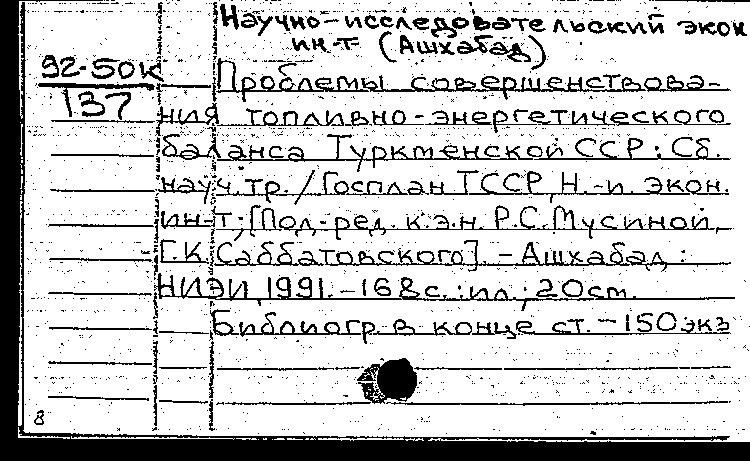 Научно-исследовательский экон
ин-т (Ашхабад)
92-50к
137
Проблемы совершенствова-
ния топливно-энергетического
баланса Туркменской ССР: Сб.
науч. тр. / Госплан ТССР, Н.-и. экон.
ин-т; [Под ред. к.э.н. Р.С. Мусиной,
Г.К. Саббатовского]. - Ашхабад:
НИЭИ, 1991. - 168 с.: ил.; 20 см.
Библиогр. в конце ст. - 150 экз
8